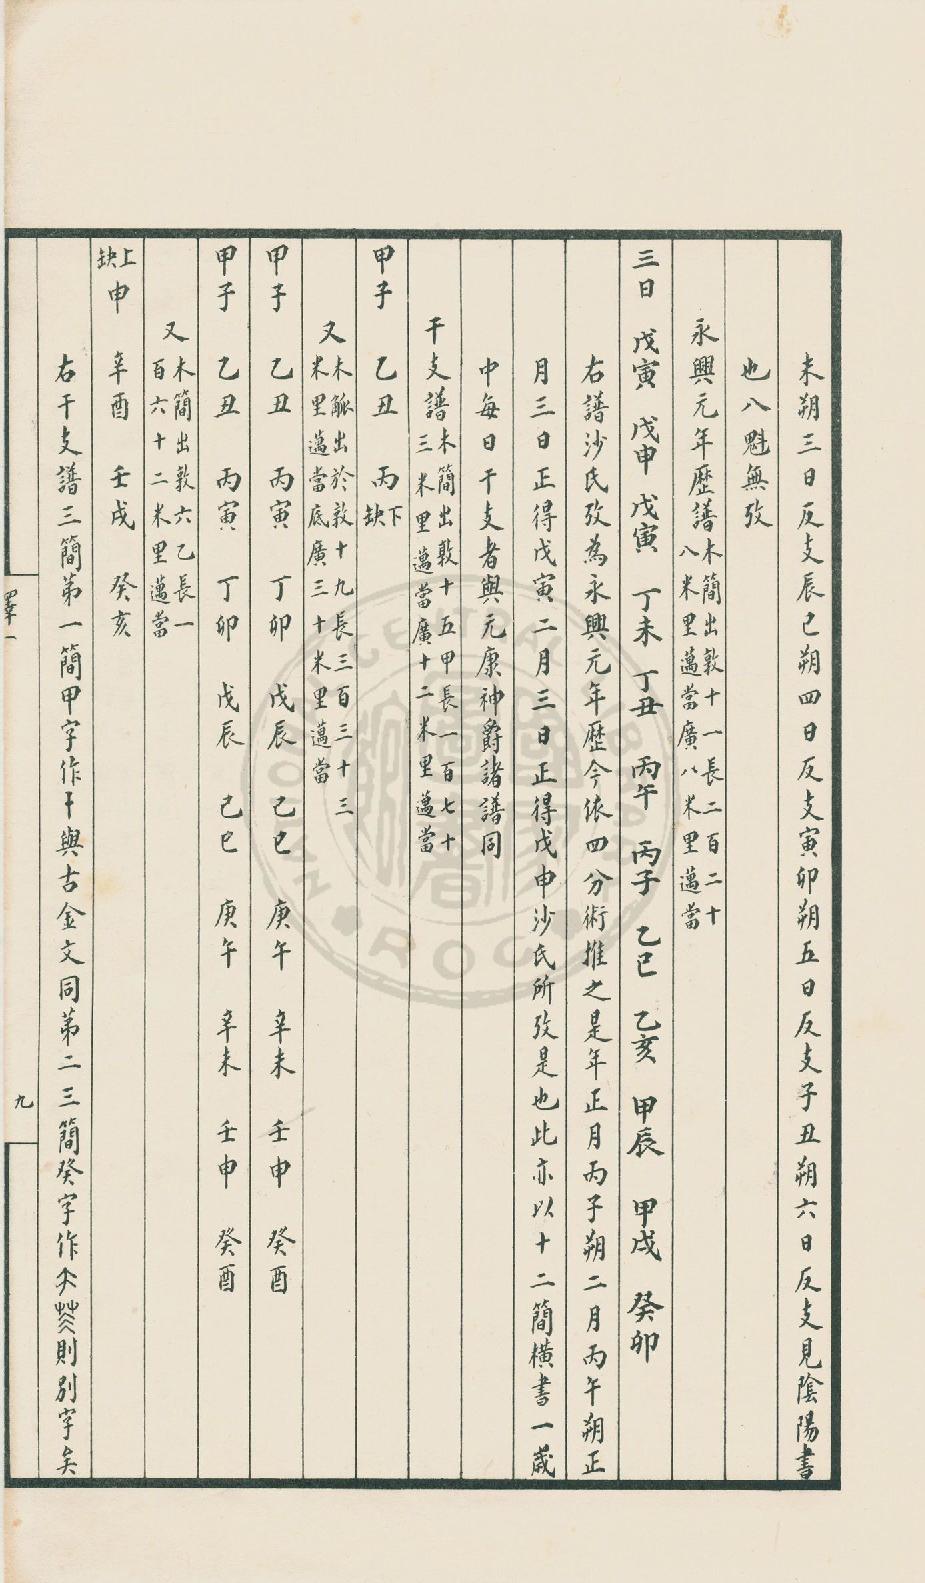 未朔三日反支辰巳朔四日反支寅卯朔五日反支子丑朔六日反支見陰陽書
也八魁無攷
永興元年歷譜木簡出敦十一長二百二十
八米里邁當廣八米里邁當
三日 戊寅 戊申 戊寅 丁未 丁丑 丙午 丙子 乙巳 乙亥 甲辰 甲戌 癸卯
右譜沙氏攷為永興元年歷今依四分術推之是年正月丙子朔二月丙午朔正
月三日正得戊寅二月三日正得戊申沙氏所攷是也此亦以十二簡橫書一歲
中每日干支者與元康神爵諸譜同
干支譜木簡出敦十五甲長一百七十
三米里邁當廣十二米里邁當
甲子 乙丑 丙下
缺
又木觚出於敦十九長三百三十三
米里邁當底廣三十米里邁當
甲子 乙丑 丙寅 丁卯 戊辰 己巳 庚午 辛未 壬申 癸酉
甲子 乙丑 丙寅 丁卯 戊辰 己巳 庚午 辛未 壬申 癸酉
又木簡出敦六乙長一
百六十二米里邁當
上
缺申 辛酉 壬戌 癸亥
右干支譜三簡第一簡甲字作十與古金文同第二三簡癸字作則別字矣
釋一
九
NATIONAL CENTRAL LIBRARY
ROC
國家圖書館